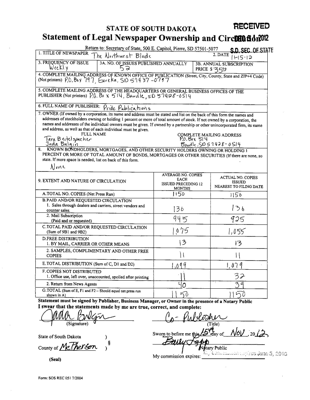 RECEIVED
STATE OF SOUTH DAKOTA
Statement of Legal Newspaper Ownership and Circulation
Return to: Secretary of State, 500 E. Capitol, Pierre, SD 57501-5077
S.D. SEC. OF STATE
1. TITLE OF NEWSPAPER The Northwest Blade
2. DATE 11-15-12
3. FREQUENCY OF ISSUE
Weekly
3A. NO. OF ISSUES PUBLISHED ANNUALLY
52
3B. ANNUAL SUBSCRIPTION
PRICE $
4. COMPLETE MAILING ADDRESS OF KNOWN OFFICE OF PUBLICATION (Street, City, County, State and ZIP+4 Code)
(Not printers) P.O. Box 797 Eureka, SD 57437-0797
5. COMPLETE MAILING ADDRESS OF THE HEADQUARTERS OR GENERAL BUSINESS OFFICES OF THE
PUBLISHER (Not printers) P.O. Box 514, Bowdle, SD 57428-0514
6. FULL NAME OF PUBLISHER: Pride Publications
7. OWNER (If owned by a corporation, its name and address must be stated and list on the back of this form the names and
addresses of stockholders owning or holding 1 percent or more of total amount of stock. If not owned by a corporation, the
names and addresses of the individual owners must be given. If owned by a partnership or other unincorporated firm, its name
and address, as well as that of each individual must be given.
FULL NAME
COMPLETE MAILING ADDRESS
Tara
P.O. Box 514
Bowdle SD 57428-0514
8. KNOWN BONDHOLDERS, MORTGAGEES, AND OTHER SECURITY HOLDERS OWNING OR HOLDING 1
PERCENT OR MORE OF TOTAL AMOUNT OF BONDS, MORTGAGES OR OTHER SECURITIES (If there are none, so
state. If more space is needed, list on back of this form.
None
9. EXTENT AND NATURE OF CIRCULATION
AVERAGE NO. COPIES
EACH
ISSUED PRECEDING 12
MONTHS
ACTUAL NO. COPIES
ISSUED
NEAREST TO FILING DATE
A. TOTAL NO. COPIES (Net Press Run)
1150
1150
B. PAID AND/OR REQUESTED CIRCULATION
1. Sales through dealers and carriers, street vendors and
counter sales
130
130
2. Mail Subscription
(Paid and or requested)
945
925
C. TOTAL PAID AND/OR REQUESTED CIRCULATION
(Sum of 9B1 and 9B2)
1,075
1,055
D. FREE DISTRIBUTION
1. BY MAIL, CARRIER OR OTHER MEANS
13
13
2. SAMPLES, COMPLIMENTARY AND OTHER FREE
COPIES
11
11
E. TOTAL DISTRIBUTION (Sum of C, D1 and D2)
1,099
1,079
F. COPIES NOT DISTRIBUTED
1. Office use, left over, unaccounted, spoiled after printing
11
32
2. Return from News Agents
40
39
G. TOTAL (Sum of E, F1 and F2 - Should equal net press run
shown in A)
1150
1150
Statement must be signed by Publisher, Business Manager, or Owner in the presence of a Notary Public
I swear that the statements made by me are true, correct, and complete:
(Signature)
Co-Publisher
(Title)
State of South Dakota )
County of McPherson )
§
Sworn to before me this 15th day of Nov, 2012
Notary Public
(Seal)
My commission expires:
Form: SOS REC 051 7/2004